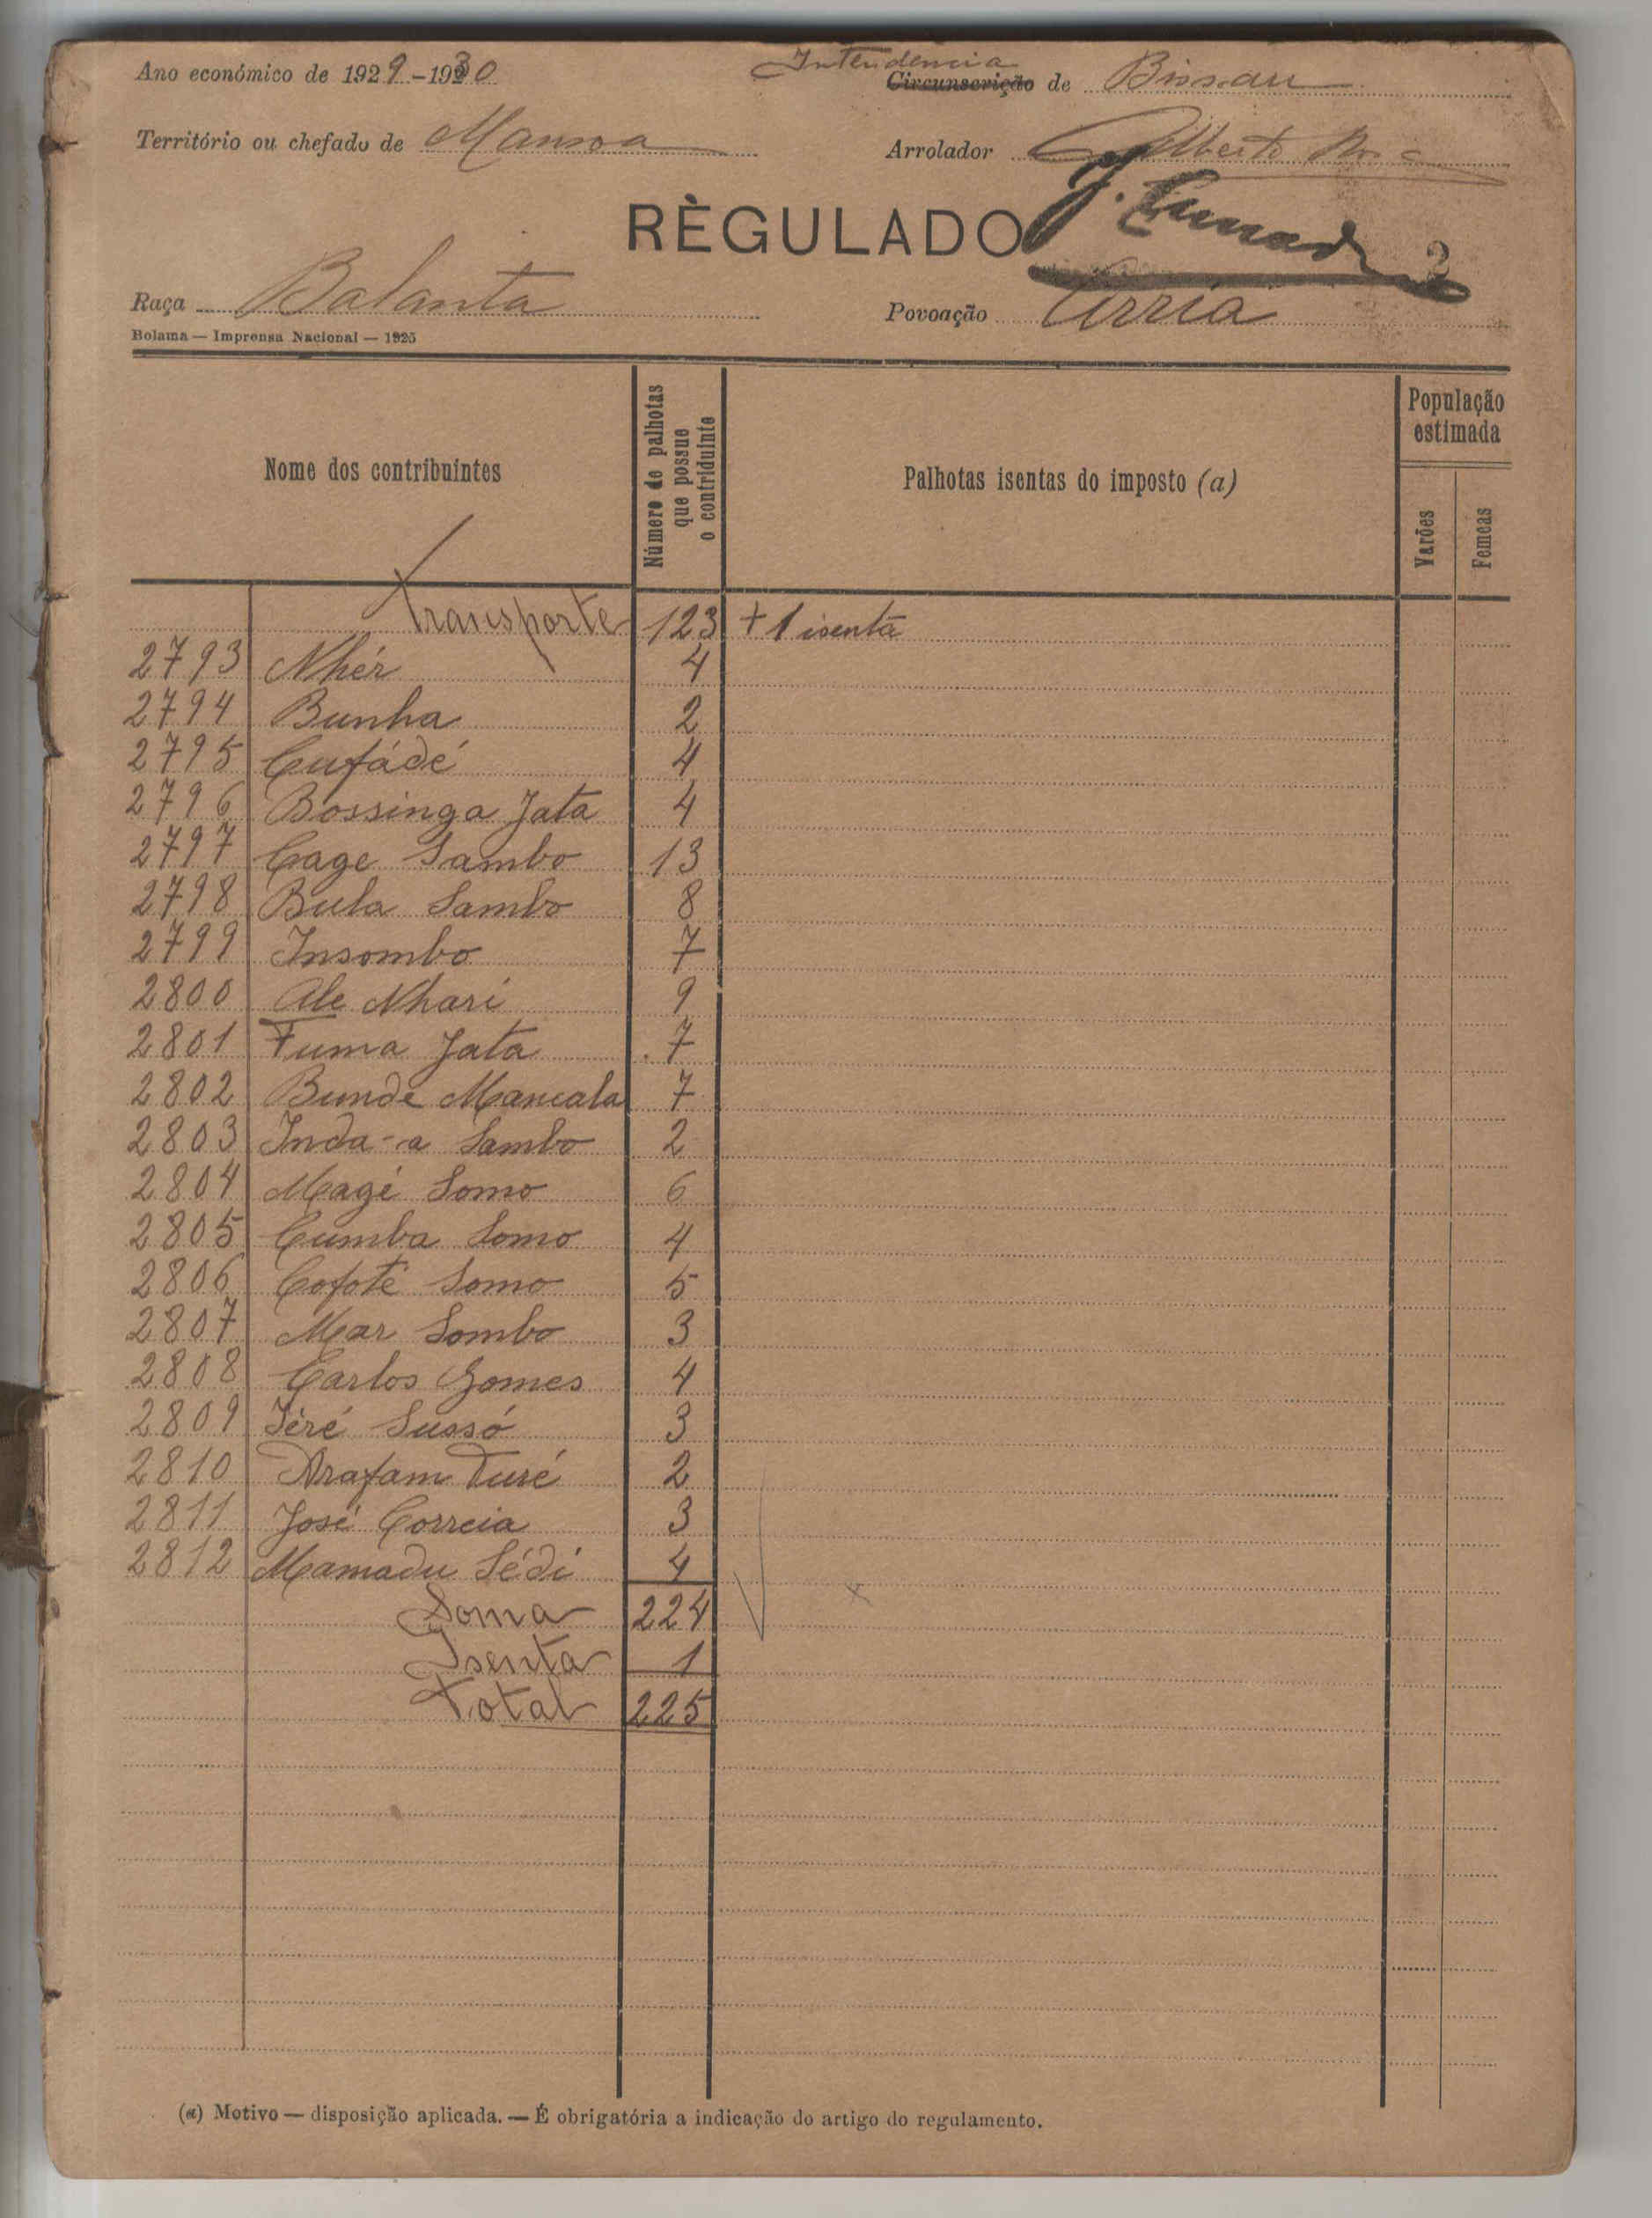 Ano económico de 1929-1930
Intendencia
Circunscrição de Bissau
Território ou chefado de Mansoa
Arrolador Alberto
RÈGULADO
2
Raça Balanta
Povoação Urria
Bolama — Imprensa Nacional — 1925
Nome dos contribuintes
Número de palhotas que possue o contriduinte
Palhotas isentas do imposto (a)
População estimada
Varões
Femeas
Transporte 123 + 1 isenta
2793 Nhér 4
2794 Bunha 2
2795 Cufádé 4
2796 Bossinga Jata 4
2797 Cage Sambo 13
2798 Bula Sambo 8
2799 Insombo 7
2800 Ale Nhari 9
2801 Fuma Jata 7
2802 Bunde Mancala 7
2803 Inda-a Sambo 2
2804 Magé Somo 6
2805 Cumba Somo 4
2806 Cofoté Somo 5
2807 Mar Sombo 3
2808 Carlos Gomes 4
2809 Jéré Sussó 3
2810 Arafam Turé 2
2811 José Correia 3
2812 Mamadu Sédi 4
Soma 224
Isenta 1
Total 225
(a) Motivo — disposição aplicada. — É obrigatória a indicação do artigo do regulamento.